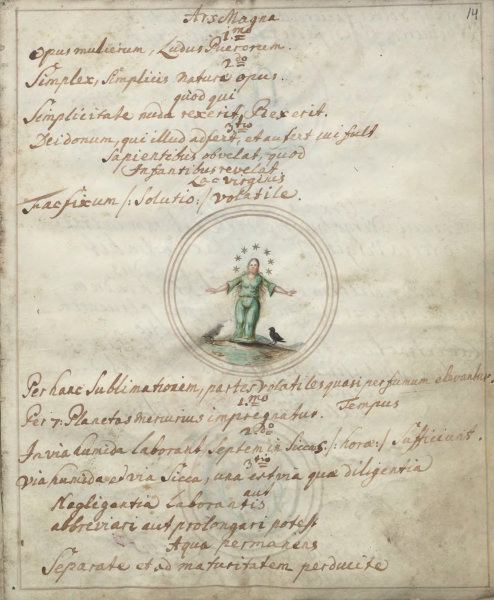 Ars Magna
14
1.mo
Opus mulierum, Ludus Puerorum.
2.do
Simplex, Simplicis naturæ opus.
quod qui
Simplicitate nuda rexerit, Rexerit.
3.tio
Dei donum, qui illud adfert, et aufert cui fult
Sapientibus obvelat, quod
Infantibus revelat
Lac virginis
Fac fixum /: Solutio :/ volatile.
Per hanc Sublimationem, partes volatiles quasi per fumum elevantur.
1.mo Tempus
Per 7. Planetas mercurius impregnatur.
2.do
In via humida laborant Septem in Sicca, /: horæ :/ Sufficiunt.
3.tio
Via humida et via Sicca, una est via quæ diligentia
aut
Negligentia Laborantis
abbreviari aut prolongari potest
Aqua permanens
Separate et ad maturitatem perducite